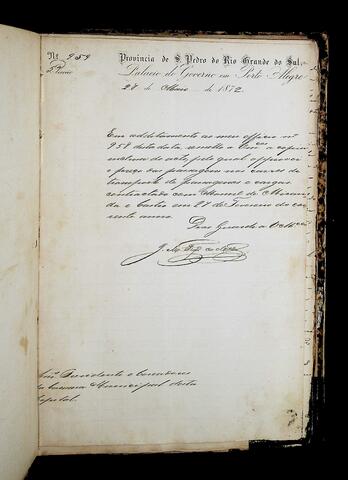 Nº 959
Provincia de S. Pedro do Rio Grande do Sul.
Palacio do Governo em Porto Alegre
27 de Maio de 1872.
Em additamento ao meu officio nº
958 desta data, remetto a Vmcês a copia
do acto, pelo qual approvei
o preço das passagens nos carros de
transporte de passageiros e cargas
contractado com Manoel de Miran
da e Castro em 27 de Fevereiro do cor
rente anno.
Deos Guarde a Vmcês
Presidente e Vereadores
da Camara Municipal desta
Capital.